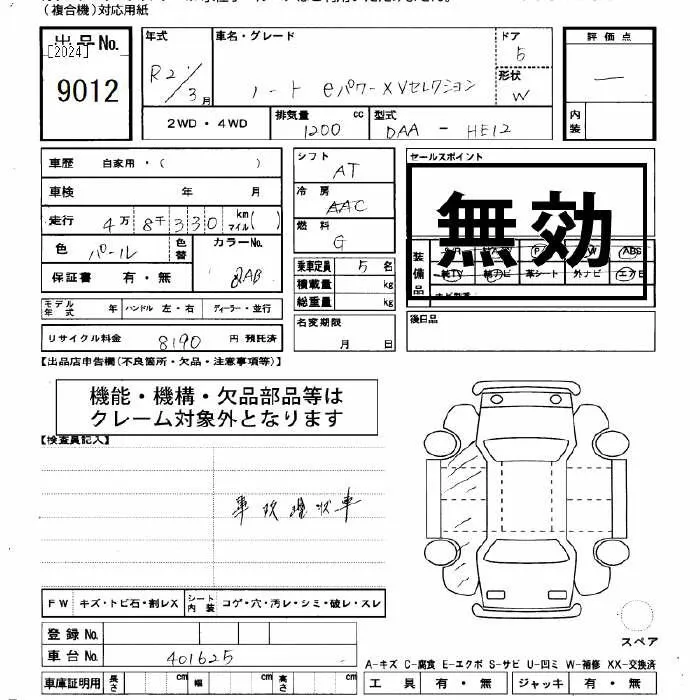 （複合機）対応用紙
出品No.
[2024]
9012
年式
R2 1/3月
車名・グレード
ノート eパワーXVセレクション
ドア
5
形状
W
評価点
内装
2WD・4WD
排気量 cc
1200
型式
DAA - HE12
車歴 自家用・( )
車検 年 月
走行 4万8千330 km マイル( )
色 パール
色替
カラーNo.
QAB
保証書 有・無
モデル年式 年 ハンドル 左・右 ディーラー・並行
リサイクル料金 8190 円 預託済
シフト
AT
冷房
AAC
燃料
G
乗車定員 5名
積載量 kg
総重量 kg
名変期限
月 日
セールスポイント
無効
装備品
ABS
革シート 外ナビ エアB
後日品
【出品店申告欄(不良箇所・欠品・注意事項等)】
機能・機構・欠品部品等は
クレーム対象外となります
【検査員記入】
FW キズ・トビ石・割レX シート内装 コゲ・穴・汚レ・シミ・破レ・スレ
登録No.
車台No. 401625
車庫証明用 長さ cm 幅 cm 高さ cm
スペア
A-キズ C-腐食 E-エクボ S-サビ U-凹ミ W-補修 XX-交換済
工具 有・無 ジャッキ 有・無